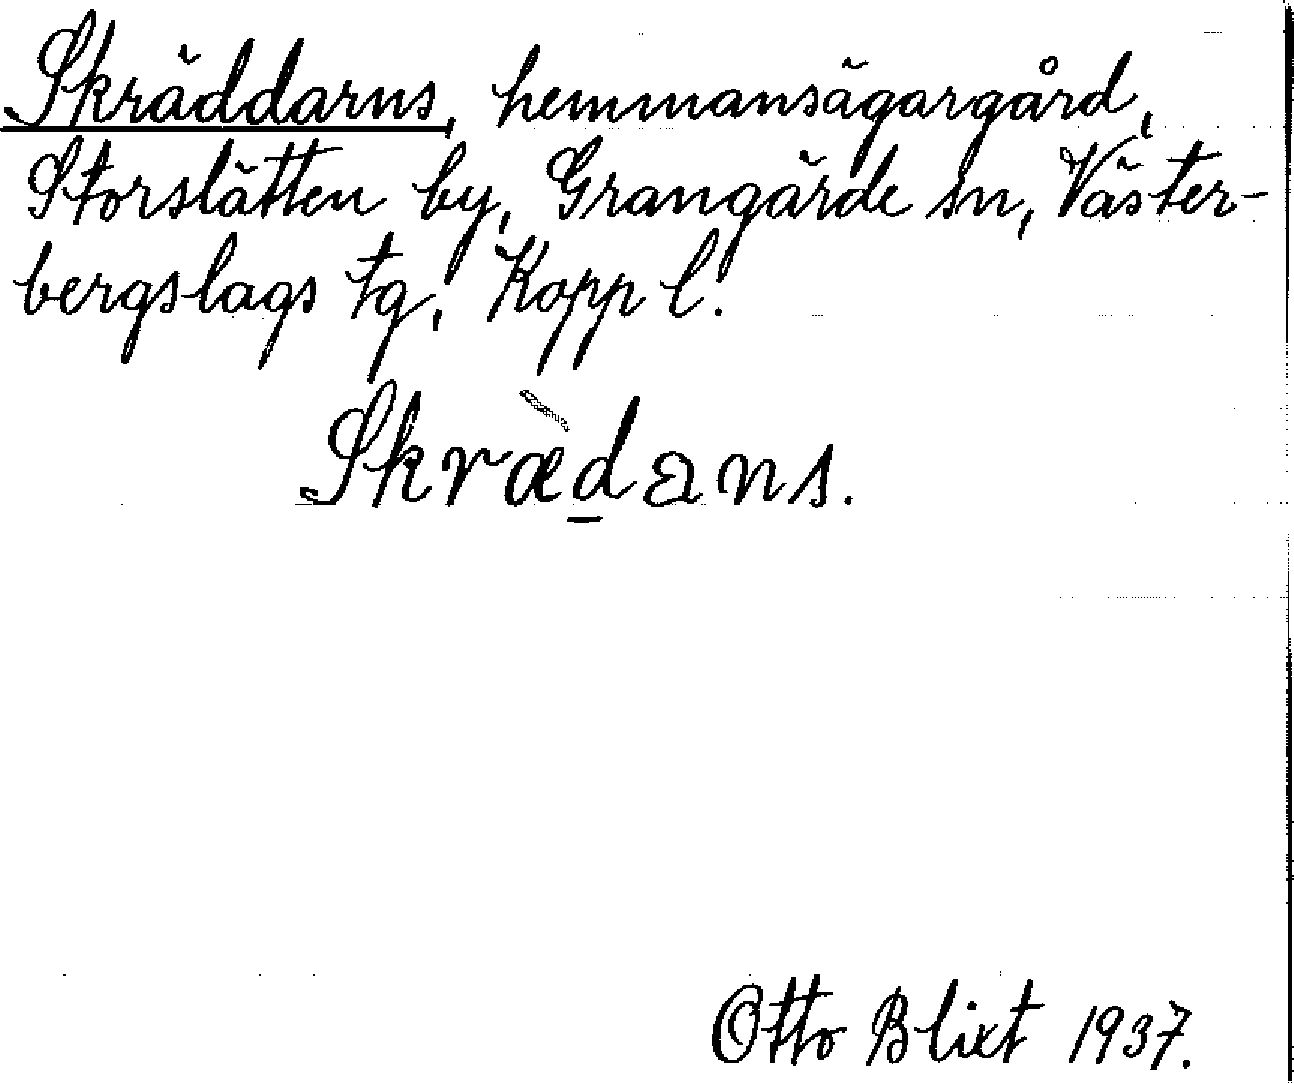 Skräddarns, hemmansägargård,
Storslätten by, Grangärde sn, Väster-
bergslags tg, Kopp l.
Skræ̀d̲ans.
Otto Blixt 1937.